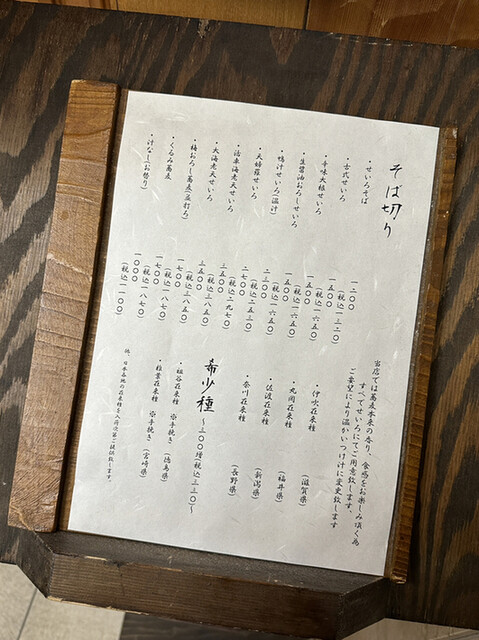 そば切り
・せいろそば 一二〇〇
(税込一三二〇)
・古式せいろ 一五〇〇
(税込一六五〇)
・辛味大根せいろ 一五〇〇
(税込一六五〇)
・生醤油おろしせいろ 一五〇〇
(税込一六五〇)
・鴨汁せいろ(温汁) 二三〇〇
(税込二五三〇)
・天婦羅せいろ 二七〇〇
(税込二九七〇)
・活車海老天せいろ 三五〇〇
(税込三八五〇)
・大海老天せいろ 三五〇〇
(税込三八五〇)
・梅おろし蕎麦(並打ち) 一七〇〇
(税込一八七〇)
・くるみ蕎麦 一七〇〇
(税込一八七〇)
・汁なし(お替り) 一〇〇〇
(税込一一〇〇)
当店では蕎麦本来の香り、食感をお楽しみ頂く為
すべてせいろにてご用意致します。
ご要望により温かいつけ汁に変更致します
・伊吹在来種 (滋賀県)
・丸岡在来種 (福井県)
・佐渡在来種 (新潟県)
・奈川在来種 (長野県)
希少種 〜三〇〇増(税込三三〇)〜
・祖谷在来種 ※手挽き (徳島県)
・椎葉在来種 ※手挽き (宮崎県)
他、日本各地の在来種を入荷次第ご提供致します。